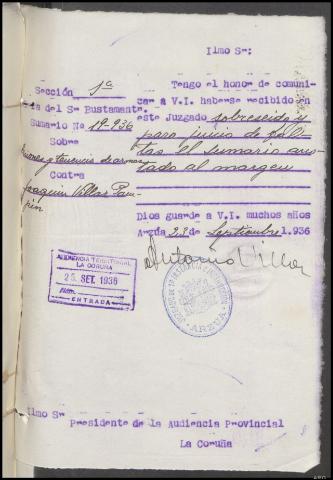 Ilmo Sr:
Sección 1ª
ía del Sr Bustamante
Sumario Nº 19-936
Sobre
lesiones y tenencia de armas
Contra
Joaquin Villar Pam-
pin
Tengo el honor de comuni-
car a V.I. haberse recibido en
este Juzgado sobreseido y
para juicio de fal-
tas el sumario ano-
tado al margen
Dios guarde a V.I. muchos años
Arzúa 23 de Septiembre 1.936
Antonio Villar
AUDIENCIA TERRITORIAL
LA CORUÑA
25 SET. 1936
Núm.
ENTRADA
JUZGADO DE 1ª INSTANCIA E INSTRUCCION
ARZUA
Ilmo Sr
Presidente de la Audiencia Provincial
La Coruña